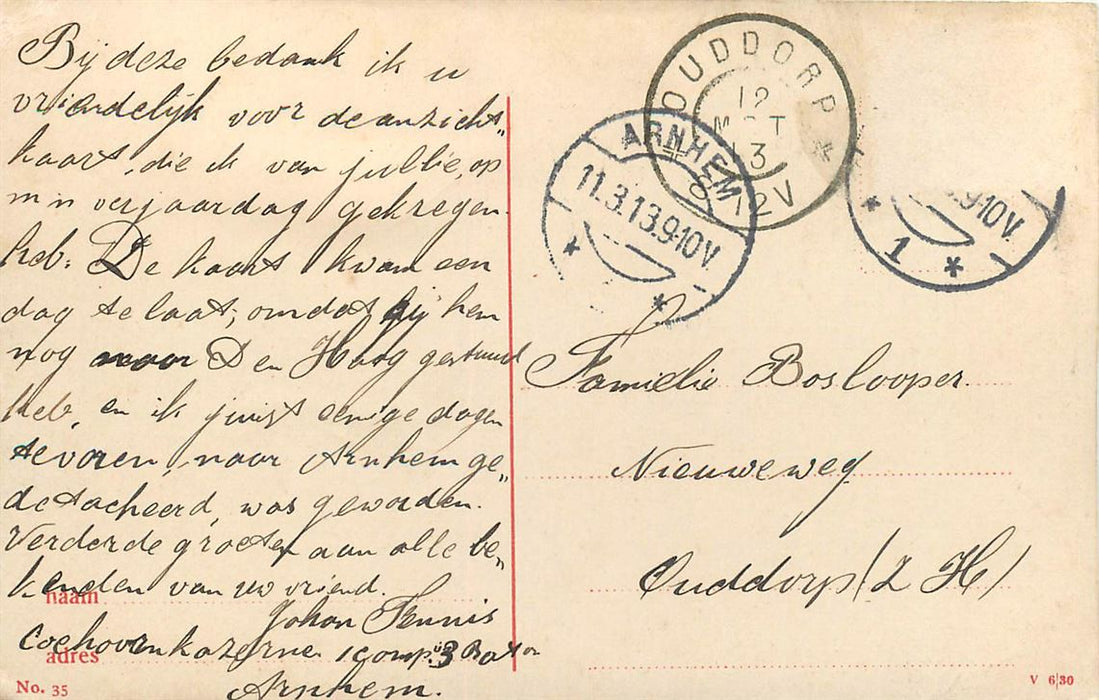 Bij deze bedank ik u
vriendelijk voor de anzicht"
kaart, die ik van jullie, op
m'n verjaardag gekregen
heb. De kaart kwam een
dag te laat; omdat gij hem
nog naar Den Haag gestuurd
heb, en ik juist eenige dagen
tevoren, naar Arnhem ge"
detacheerd, was geworden.
Verderde groeten aan alle be"
kenden van uw vriend.
naam
Johan Tennis
Coehoornkazerne 1 comp. 3 Baton
adres
Arnhem.
No. 35
OUDDORP
12
13
8-12V
ARNHEM
11.3.13.9-10V.
9-10V.
1
Familie Boslooper
Nieuweweg
Ouddorp (Z H)
V 6|30